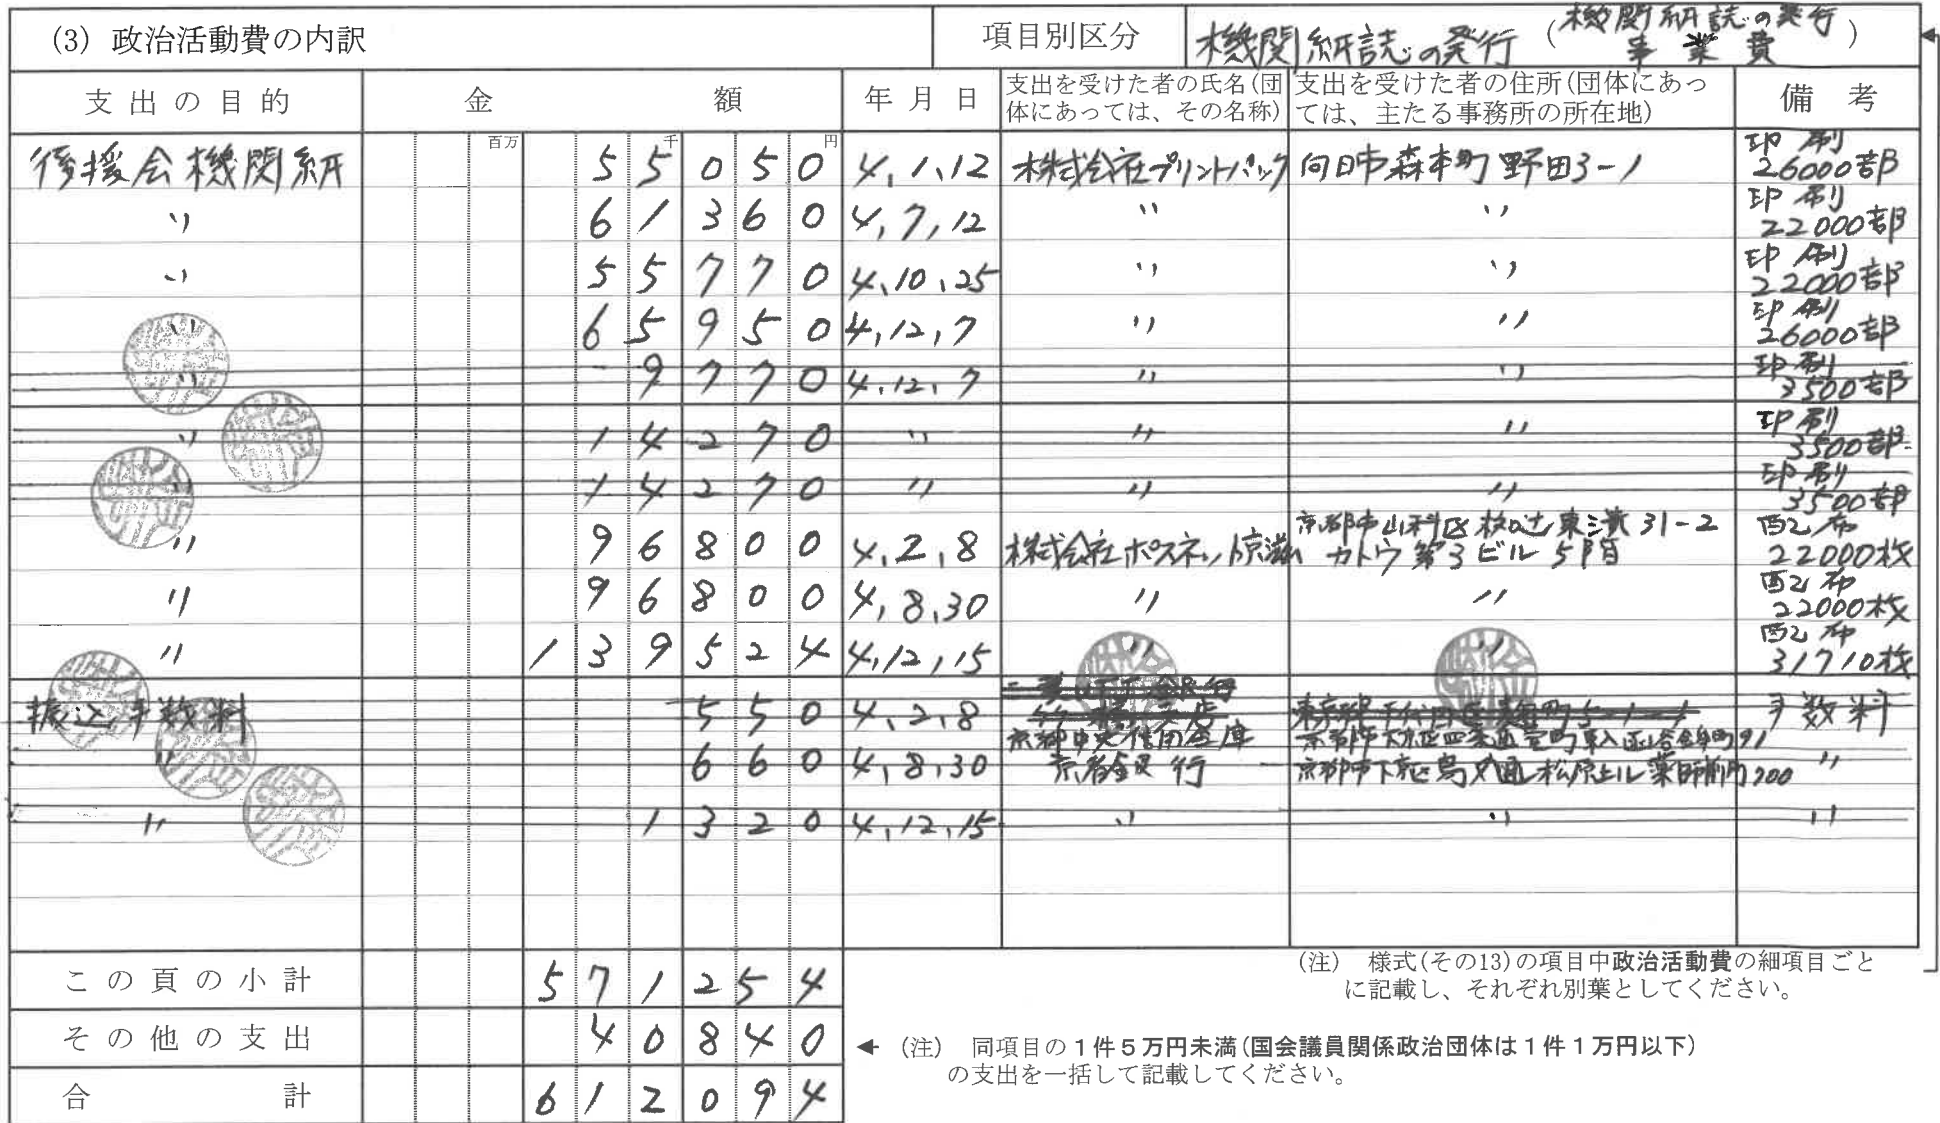 (3) 政治活動費の内訳 項目別区分 機関紙誌の発行 (機関紙誌の発行事業費)
支出の目的 金額 年月日 支出を受けた者の氏名(団体にあっては、その名称) 支出を受けた者の住所(団体にあっては、主たる事務所の所在地) 備考
百万 千 円
後援会機関紙 55050 4,1,12 株式会社プリントパック 向日市森本町野田3-1 印刷 26000部
〃 61360 4,7,12 〃 〃 印刷 22000部
〃 55770 4,10,25 〃 〃 印刷 22000部
〃 65950 4,12,7 〃 〃 印刷 26000部
〃 9770 4,12,7 〃 〃 印刷 3500部
〃 14270 〃 〃 〃 印刷 3500部
〃 14270 〃 〃 〃 印刷 3500部
〃 96800 4,2,8 株式会社ポスネット京滋 京都市山科区 東 31-2 カトウ第3ビル5階 配布 22000枚
〃 96800 4,8,30 〃 〃 配布 22000枚
〃 139524 4,12,15 〃 〃 配布 31710枚
振込手数料 550 4,2,8 京都中央信用金庫 京都市下京区四条通室町東入函谷鉾町91 手数料
〃 660 4,8,30 京都銀行 京都市下京区烏丸通松原上ル薬師前町700 〃
〃 1320 4,12,15 〃 〃 〃
この頁の小計 571254
その他の支出 40840
合計 612094
(注) 様式(その13)の項目中政治活動費の細項目ごと
に記載し、それぞれ別葉としてください。
← (注) 同項目の1件5万円未満(国会議員関係政治団体は1件1万円以下)
の支出を一括して記載してください。